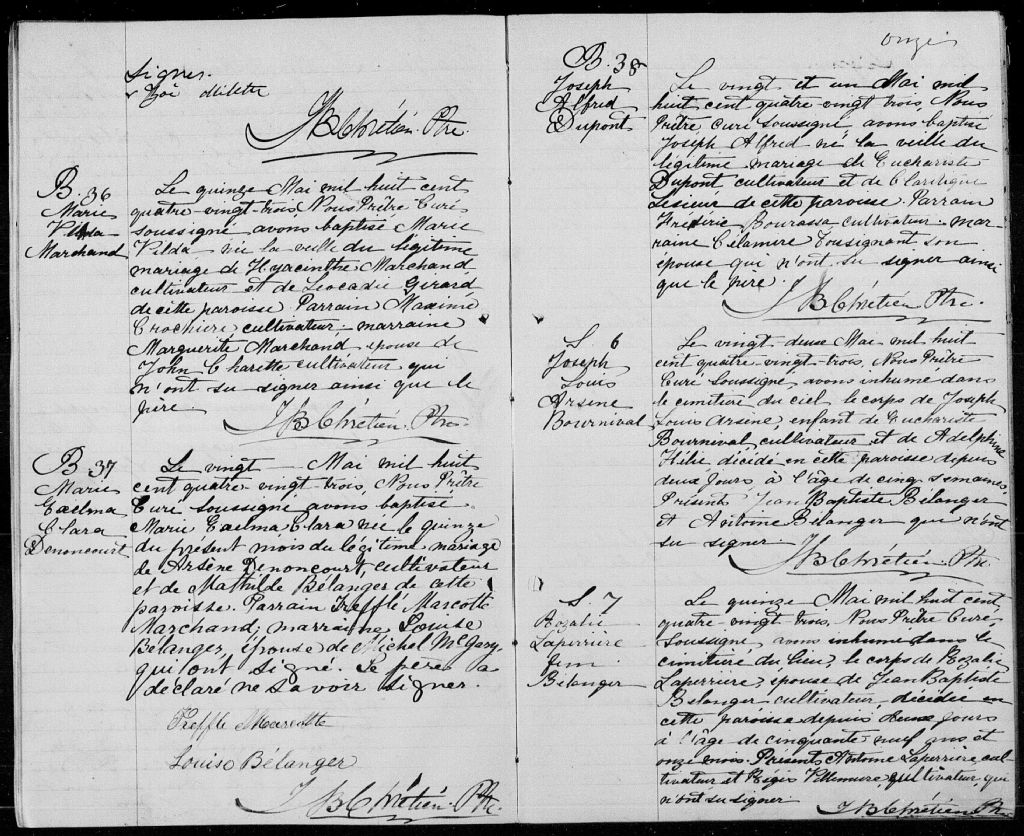 signer.
Zoé Milette
JB Chrétien Ptre.
B. 36
Marie
Vilda
Marchand
Le quinze Mai mil huit cent
quatre-vingt-trois, Nous Prêtre Curé
soussigné avons baptisé Marie
Vilda née la veille du légitime
mariage de Hyacinthe Marchand
cultivateur et de Léocadie Girard
de cette paroisse Parrain Maxime
Crochière cultivateur marraine
Marguerite Marchand épouse de
John Charette cultivateur qui
n'ont su signer ainsi que le
père.
JB Chrétien Ptre
B 37
Marie
Exelma
Clara
Denoncourt
Le vingt Mai mil huit
cent quatre-vingt-trois, Nous Prêtre
Curé soussigné avons baptisé
Marie Exelma Clara née le quinze
du présent mois du légitime mariage
de Arsène Denoncourt, cultivateur
et de Mathilde Bélanger de cette
paroisse. Parrain Treffle Marcotte
Marchand; marraine Louise
Bélanger, épouse de Michel
qui ont signé. Le père a
déclaré ne savoir signer.
Treffle Marcotte
Louise Bélanger
JB Chrétien Ptre
onze
B. 38
Joseph
Alfred
Dupont
Le vingt et un Mai mil
huit cent quatre-vingt trois, Nous
Prêtre Curé soussigné avons baptisé
Joseph Alfred né la veille du
légitime mariage de Euchariste
Dupont cultivateur et de
Lesieur de cette paroisse. Parrain
Frédéric Bourassa cultivateur mar-
raine Célamire Tousignant son
épouse qui n'ont su signer ainsi
que le père.
JB Chrétien Ptre.
S. 6
Joseph
Louis
Arsène
Bournival
Le vingt-deux Mai mil huit
cent quatre-vingt-trois, Nous Prêtre
Curé soussigné avons inhumé dans
le cimetière du ciel le corps de Joseph
Louis Arsène, enfant de Euchariste
Bournival cultivateur et de Adelphine
Hélie décédé en cette paroisse depuis
deux jours à l'âge de cinq semaines,
Présents Jean Baptiste Bélanger
et Antoine Bélanger qui n'ont
su signer.
JB Chrétien Ptre
S. 7
Rozalie
Laperrière
fem.
Bélanger
Le quinze Mai mil huit cent
quatre-vingt-trois, Nous Prêtre Curé
soussigné avons inhumé dans le
cimetière du lieu, le corps de Rozalie
Laperrière, épouse de Jean Baptiste
Bélanger cultivateur, décédée en
cette paroisse depuis deux jours
à l'âge de cinquante-neuf ans et
onze mois. Présents Antoine Laperrière cul-
tivateur et Régis Villemure, cultivateur, qui
n'ont su signer.
JB Chrétien Ptre